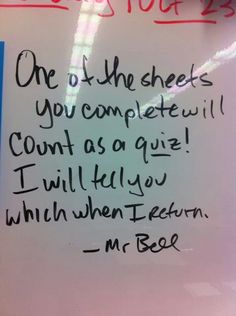 Oct 23
One of the sheets
you complete will
count as a quiz!
I will tell you
which when I return.
- Mr Bell